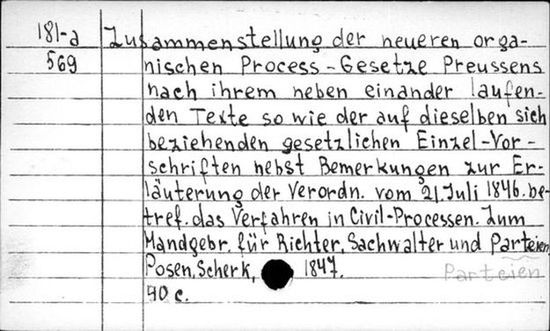 181-a Zusammenstellung der neueren orga-
569 nischen Process-Gesetze Preussens
nach ihrem neben einander laufen-
den Texte so wie der auf dieselben sich
beziehenden gesetzlichen Einzel-Vor-
schriften nebst Bemerkungen zur Er-
läuterung der Verordn. vom 21. Juli 1846. be-
tref. das Verfahren in Civil-Processen. Zum
Handgebr. für Richter, Sachwalter und Parteien
Posen, Scherk, 1847. Parteien
90 c.